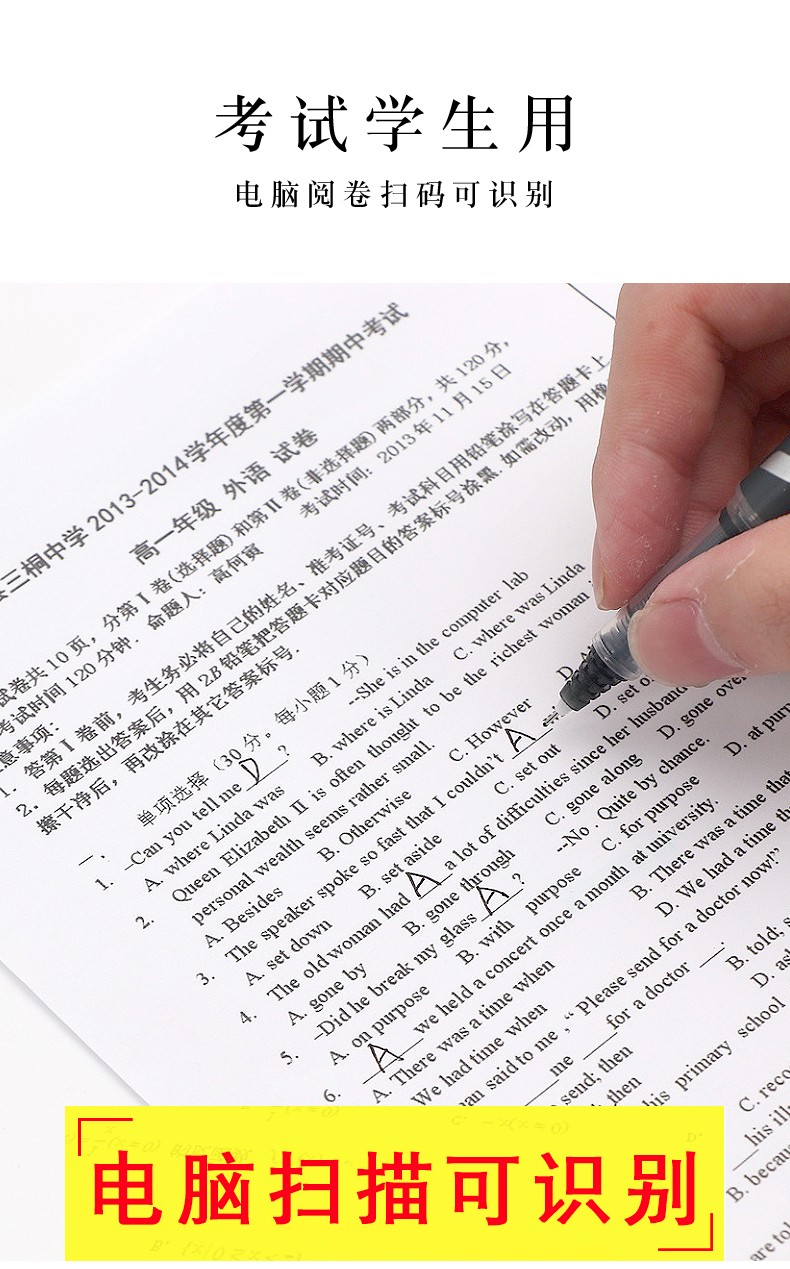 考试学生用
电脑阅卷扫码可识别
三桐中学 2013-2014学年度第一学期期中考试
高一年级 外语 试卷
试卷共 10 页，分第 I 卷(选择题)和第 II 卷(非选择题)两部分，共 120 分，
考试时间 120 分钟． 命题人：高何寅 考试时间：2013 年 11 月 15 日
意事项：
1．答第 I 卷前，考生务必将自己的姓名、准考证号、考试科目用铅笔涂写在答题卡上
2．每题选出答案后，用 2B 铅笔把答题卡对应题目的答案标号涂黑．如需改动，用橡
擦干净后，再改涂在其它答案标号．
一、 单项选择（30 分。每小题 1 分）
1. –Can you tell me D ? --She is in the computer lab
A. where Linda was B. where is Linda C. where was Linda
2. Queen Elizabeth II is often thought to be the richest woman
personal wealth seems rather small.
A. Besides B. Otherwise C. However D.
3. The speaker spoke so fast that I couldn't A
A. set down B. set aside C. set out D. set
4. The old woman had A a lot of difficulties since her husband
A. gone by B. gone through C. gone along D. gone over
5. –Did he break my glass A ? --No . Quite by chance.
A. on purpose B. with purpose C. for purpose D. at
6. A we held a concert once a month at university.
A. There was a time when B. There was a time that
We had time when D. We had a time
said to me ,“ Please send for a doctor now!”
me for a doctor .
send; then B. told;
then D.
his primary school
C.
his
B.
are
电脑扫描可识别